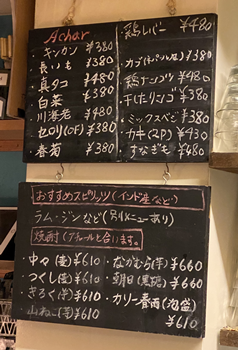 Achar
・キンカン ¥380
・長いも ¥380
・真タコ ¥480
・白菜 ¥380
・川海老 ¥480
・セロリ(OF) ¥380
・春菊 ¥380
・鶏レバー ¥480
・カブ(ネパール産) ¥380
・鶏ナンコツ ¥480
・干したリンゴ ¥380
・ミックスベジ ¥380
・カキ(2P) ¥430
・すなぎも ¥480
おすすめスピリッツ(インド産など)
ラム・ジンなど(別メニューあり)
焼酎(アチャールと合います。)
・中々(麦) ¥610
・つくし(麦) ¥610
・きろく(芋) ¥610
・山ねこ(芋) ¥610
・ながむら(芋) ¥660
・朝日(黒糖) ¥660
・カリー春雨(泡盛)
¥610